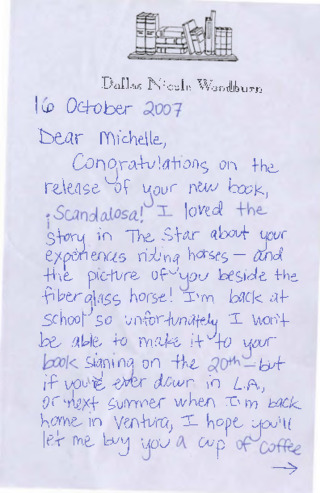 Dallas Nicole Woodburn
16 October 2007
Dear Michelle,
Congratulations on the
release of your new book,
¡Scandalosa! I loved the
story in The Star about your
experiences riding horses — and
the picture of you beside the
fiberglass horse! I'm back at
school so unfortunately I won't
be able to make it to your
book signing on the 20th — but
if you're ever down in L.A.,
or next summer when I'm back
home in Ventura, I hope you'll
let me buy you a cup of coffee
→